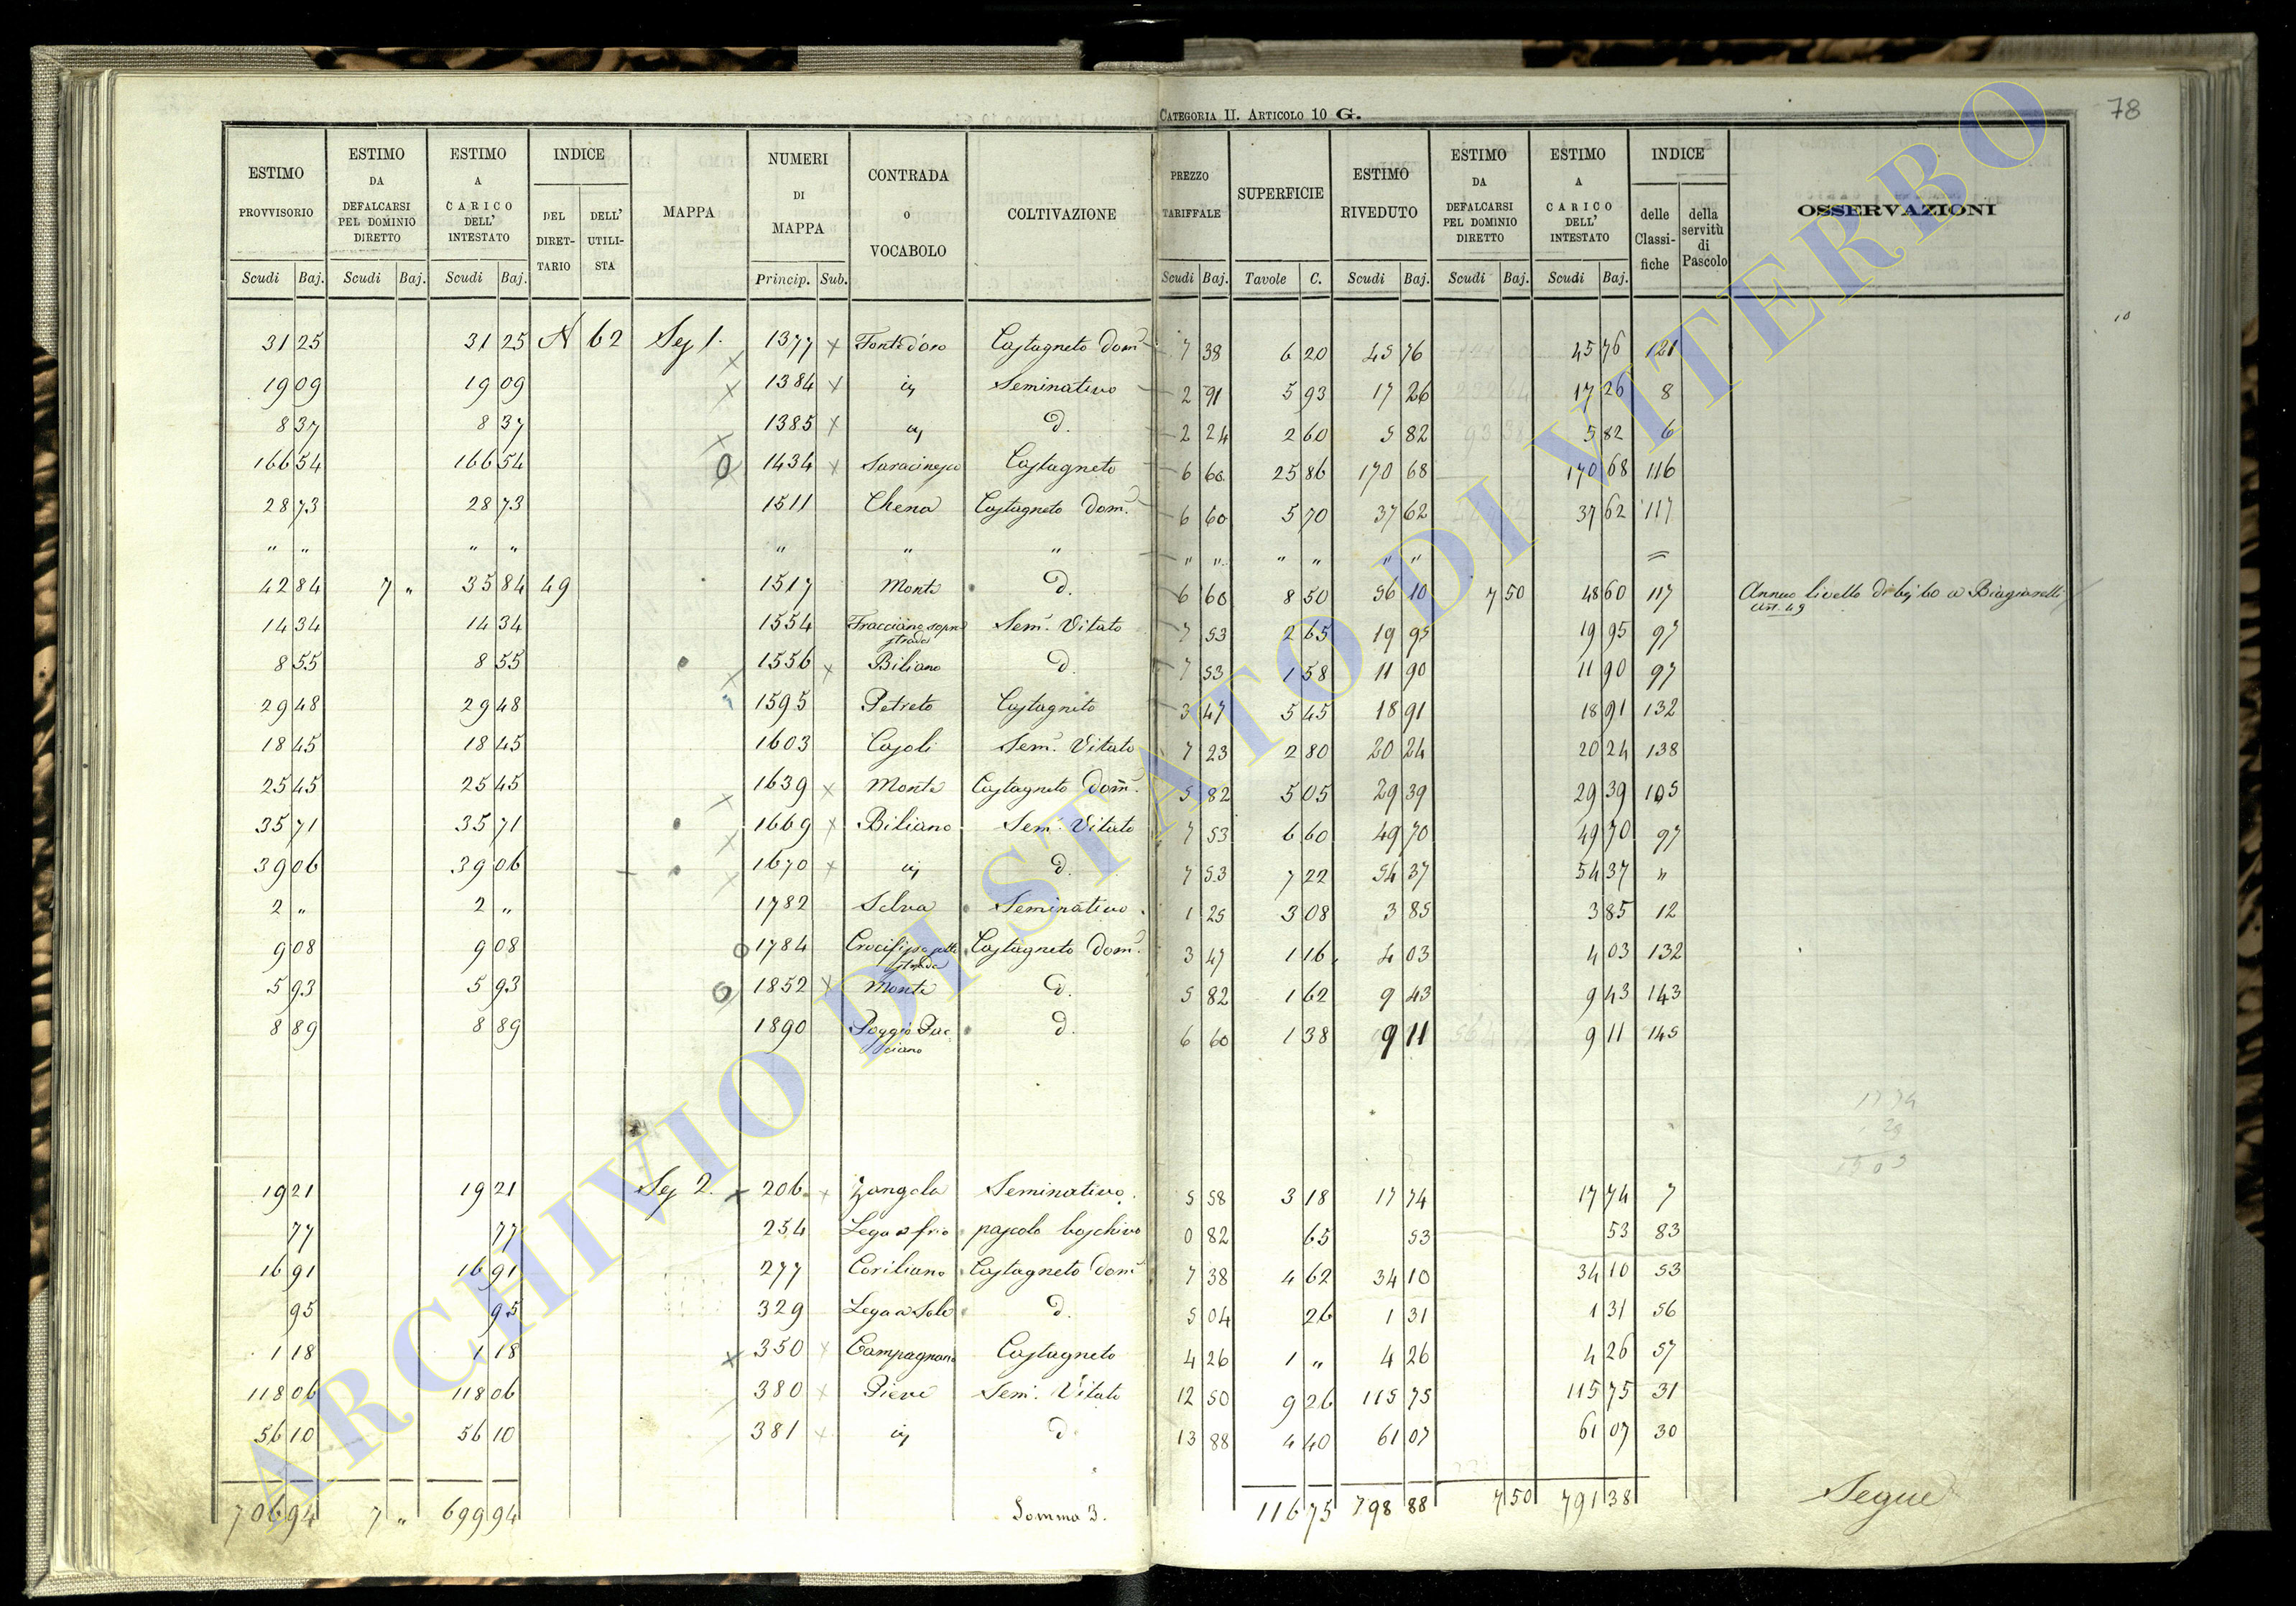 CATEGORIA II. ARTICOLO 10 G.
78
ESTIMO PROVVISORIO Scudi Baj.
ESTIMO DA DEFALCARSI PEL DOMINIO DIRETTO Scudi Baj.
ESTIMO A CARICO DELL' INTESTATO Scudi Baj.
INDICE DEL DIRET-TARIO DELL' UTILI-STA
MAPPA
NUMERI DI MAPPA Princip. Sub.
CONTRADA o VOCABOLO
COLTIVAZIONE
PREZZO TARIFFALE Scudi Baj.
SUPERFICIE Tavole C.
ESTIMO RIVEDUTO Scudi Baj.
ESTIMO DA DEFALCARSI PEL DOMINIO DIRETTO Scudi Baj.
ESTIMO A CARICO DELL' INTESTATO Scudi Baj.
INDICE delle Classi-fiche della servitù di Pascolo
OSSERVAZIONI
10
31 25 31 25 N 62 Sez 1. 1377 x Castagneto Dom. 7 38 6 20 45 76 45 76 121
19 09 19 09 1384 x Seminativo 2 91 5 93 17 26 17 26 8
8 37 8 37 1385 x d. 2 24 2 60 5 82 5 82 6
166 54 166 54 1434 x Castagneto 6 60 25 86 170 68 170 68 116
28 73 28 73 1511 Chena Castagneto Dom. 6 60 5 70 37 62 37 62 117
" " " " " " " " " " " " "
42 84 7 " 35 84 49 1517 Monte d. 6 60 8 50 56 10 7 50 48 60 117 Annuo livello di 60 a Biagiarelli
Art. 49
14 34 14 34 1554 Fracciano sopra strada Sem. Vitato 7 53 2 65 19 95 19 95 97
8 55 8 55 1556 x Biliano d. 7 53 1 58 11 90 11 90 97
29 48 29 48 1595 Petreto Castagneto 3 47 5 45 18 91 18 91 132
18 45 18 45 1603 Casoli Sem. Vitato 7 23 2 80 20 24 20 24 138
25 45 25 45 1639 x Monte Castagneto Dom. 5 82 5 05 29 39 29 39 105
35 71 35 71 1669 x Biliano Sem. Vitato 7 53 6 60 49 70 49 70 97
39 06 39 06 1670 x d. 7 53 7 22 54 37 54 37 "
2 " 2 " 1782 Selva Seminativo 1 25 3 08 3 85 3 85 12
9 08 9 08 1784 Crocifisso sotto strada Castagneto Dom. 3 47 1 16 4 03 4 03 132
5 93 5 93 1852 x Monte d. 5 82 1 62 9 43 9 43 143
8 89 8 89 1890 Poggio d. 6 60 1 38 9 11 9 11 145
19 21 19 21 Sez 2. x 206 x Zangola Seminativo 5 58 3 18 17 74 17 74 7
77 77 254 pascolo boschivo 0 82 65 53 53 83
16 91 16 91 277 Coriliano Castagneto Dom. 7 38 4 62 34 10 34 10 53
95 95 329 Lega a Sole d. 5 04 26 1 31 1 31 56
1 18 1 18 x 350 x Campagnano Castagneto 4 26 1 " 4 26 4 26 57
118 06 118 06 380 x Pieve Sem. Vitato 12 50 9 26 115 75 115 75 31
56 10 56 10 381 x d. 13 88 4 40 61 07 61 07 30
706 94 7 " 699 94 Somma 3. 116 75 798 88 7 50 791 38 Segue
ARCHIVIO DI STATO DI VITERBO